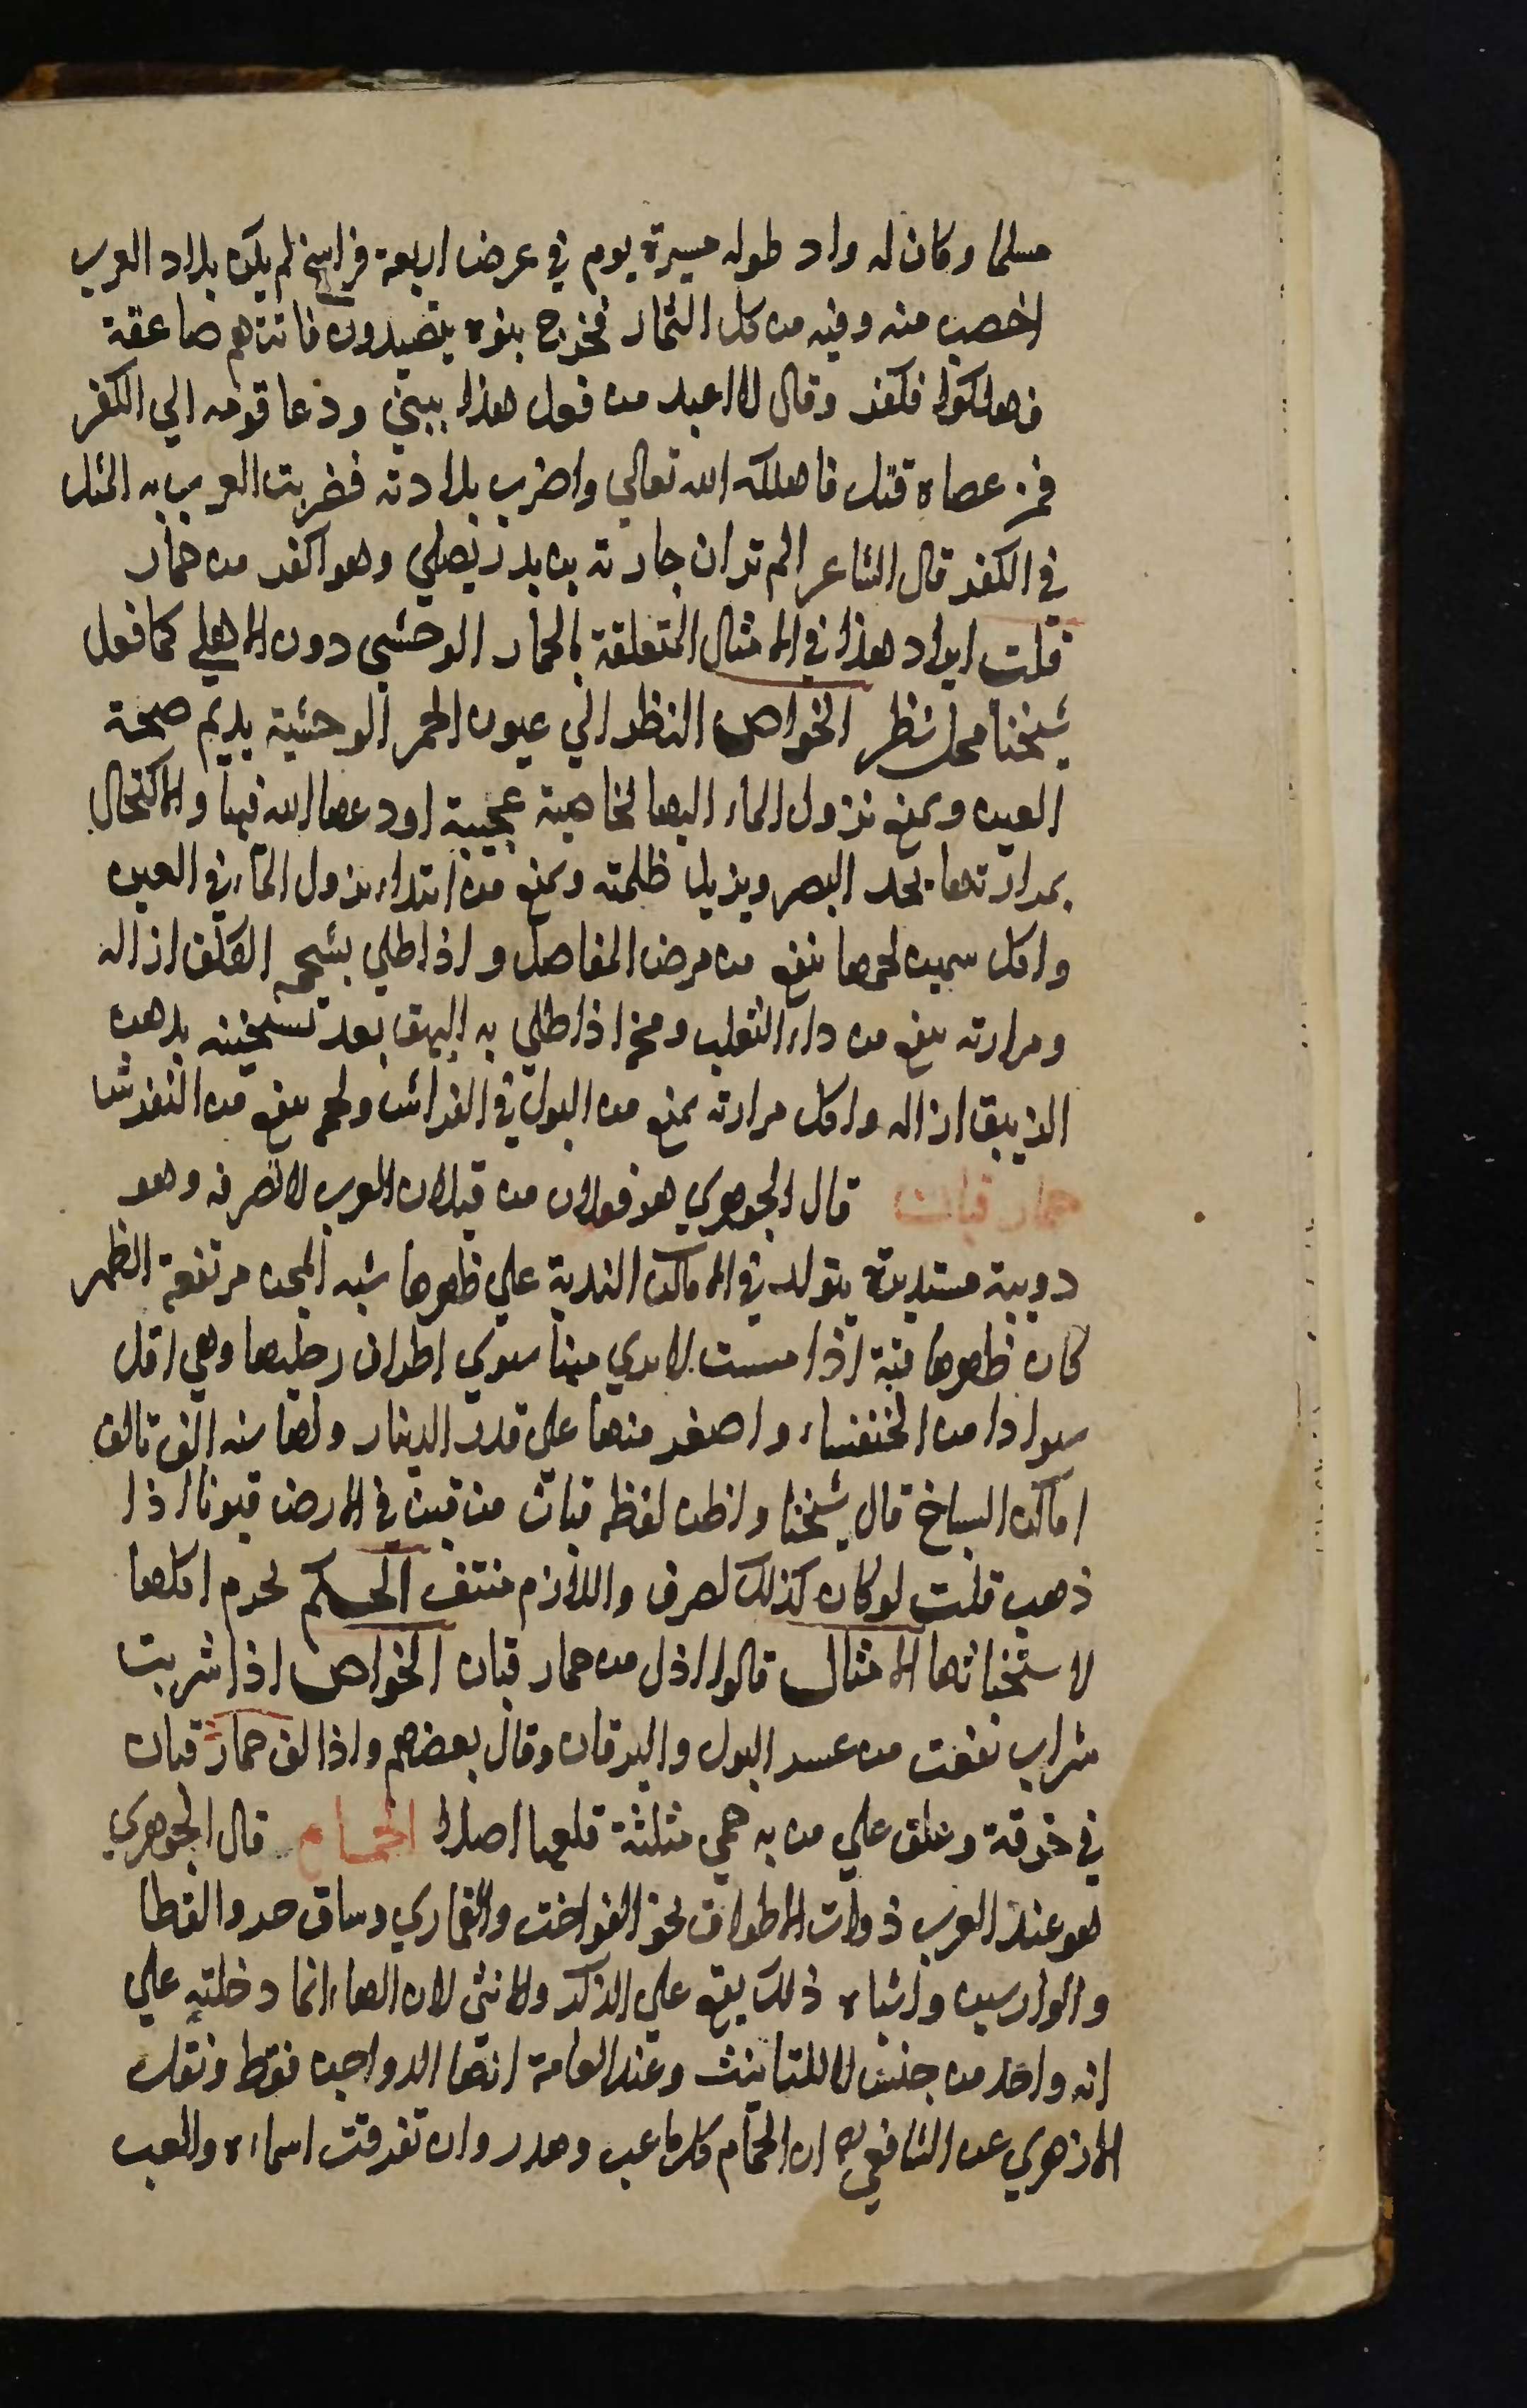 مسلما وكان له واد طوله مسيرة يوم في عرض اربعة فراسخ لم يكن بلاد العرب
اخصب منه وفيه من كل الثمار فخرج بنوه يتصيدون فاتتهم صاعقة
فهلكوا فكفر وقال لا اعبد من فعل هذا ببني ودعا قومه الي الكفر
فمن عصاه قتل فاهلكه الله تعالي واخرب بلادته فضربت العرب به المثل
في الكفر قال الشاعر الم تر ان جارته بن بدر يصلي وهو اكفر من حمار
قلت ايراد هذا في الامثال المتعلقة بالحمار الوحشي دون الاهلي كما فعل
شيخنا محل نظر الخواص النظر الي عيون الحمر الوحشية يديم صحة
العين ويمنع نزول الماء اليها لخاصية عجيبة اودعها الله فيها والاكتحال
بمرارتها يحد البصر ويزيل ظلمته ويمنع من ابتداء نزول الماء في العين
واكل سمين لحمها ينفع من مرض المفاصل واذا طلي بشحمه الكلف ازاله
ومرارته ينفع من داء الثعلب ومخه اذا طلي به البهق بعد تسخينه بدهن
الزيبق ازاله واكل مرارته يمنع من البول في الفراش ولحمه ينفع من النقرش
حمار قبان قال الجوهري هو فعلان من قب لان العرب لا تصرفه وهو
دويبة مستديرة يتولد في الاماكن الندية علي ظهرها شبه المجن مرتفعة الظهر
كان ظهرها قبة اذا مست لا يري منها سوي اطراف رجليها وهي اقل
سوادا من الخنفساء واصغر منها علي قدر الدينار ولها سنه الف تالف
اماكن السباخ قال شيخنا واظن لفظه قبان من قبن في الارض قبونا اذا
ذهب قلت لو كان كذلك لصرف واللازم منتف الحكم لحرم اكلها
لاستخباثها الامثال قالوا اذل من حمار قبان الخواص اذا شربت
شراب نفعت من عسر البول واليرقان وقال بعضهم واذا لف حمار قبان
في خرقة وعلق علي من به حمي مثلثة قلعها اصلا الحمام قال الجوهري
هو عند العرب ذوات الاطواق نحو الفواخت والقماري وساق حر والقطا
والوارسين واشباه ذلك يقع علي الذكر والانثي لان الهاء انما دخلته علي
انه واحد من جنس لا للتانيث وعند العامة انها الدواجن فقط ونقل
الازهري عن الشافعي ان الحمام كل ما عب وهدر وان تفرقت اسماءه والعب